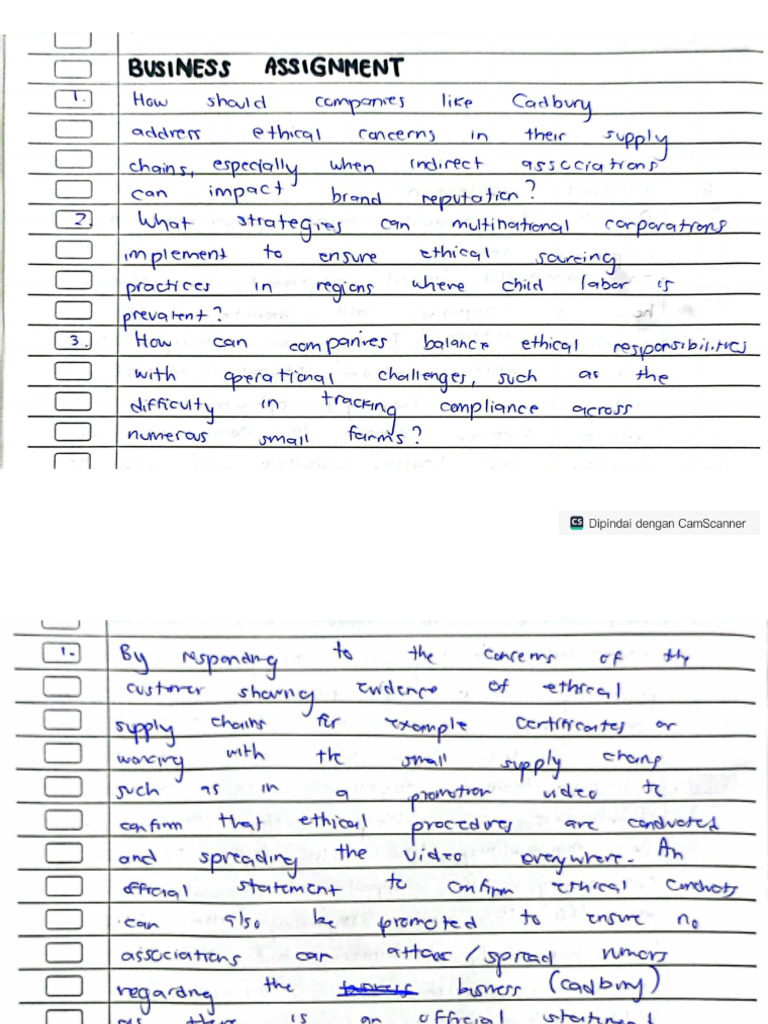 BUSINESS ASSIGNMENT
1. How should companies like Cadbury
address ethical concerns in their supply
chains, especially when indirect associations
can impact brand reputation?
2. What strategies can multinational corporations
implement to ensure ethical sourcing
practices in regions where child labor is
prevalent?
3. How can companies balance ethical responsibilities
with operational challenges, such as the
difficulty in tracking compliance across
numerous small farms?
CS Dipindai dengan CamScanner
1. By responding to the concerns of the
customer sharing evidence of ethical
supply chains for example certificates or
working with the small supply chains
such as in a promotion video to
confirm that ethical procedures are conducted
and spreading the video everywhere. An
official statement to confirm ethical conducts
can also be promoted to ensure no
associations can attack/spread rumors
regarding the business (Cadbury)
as there is an official statement